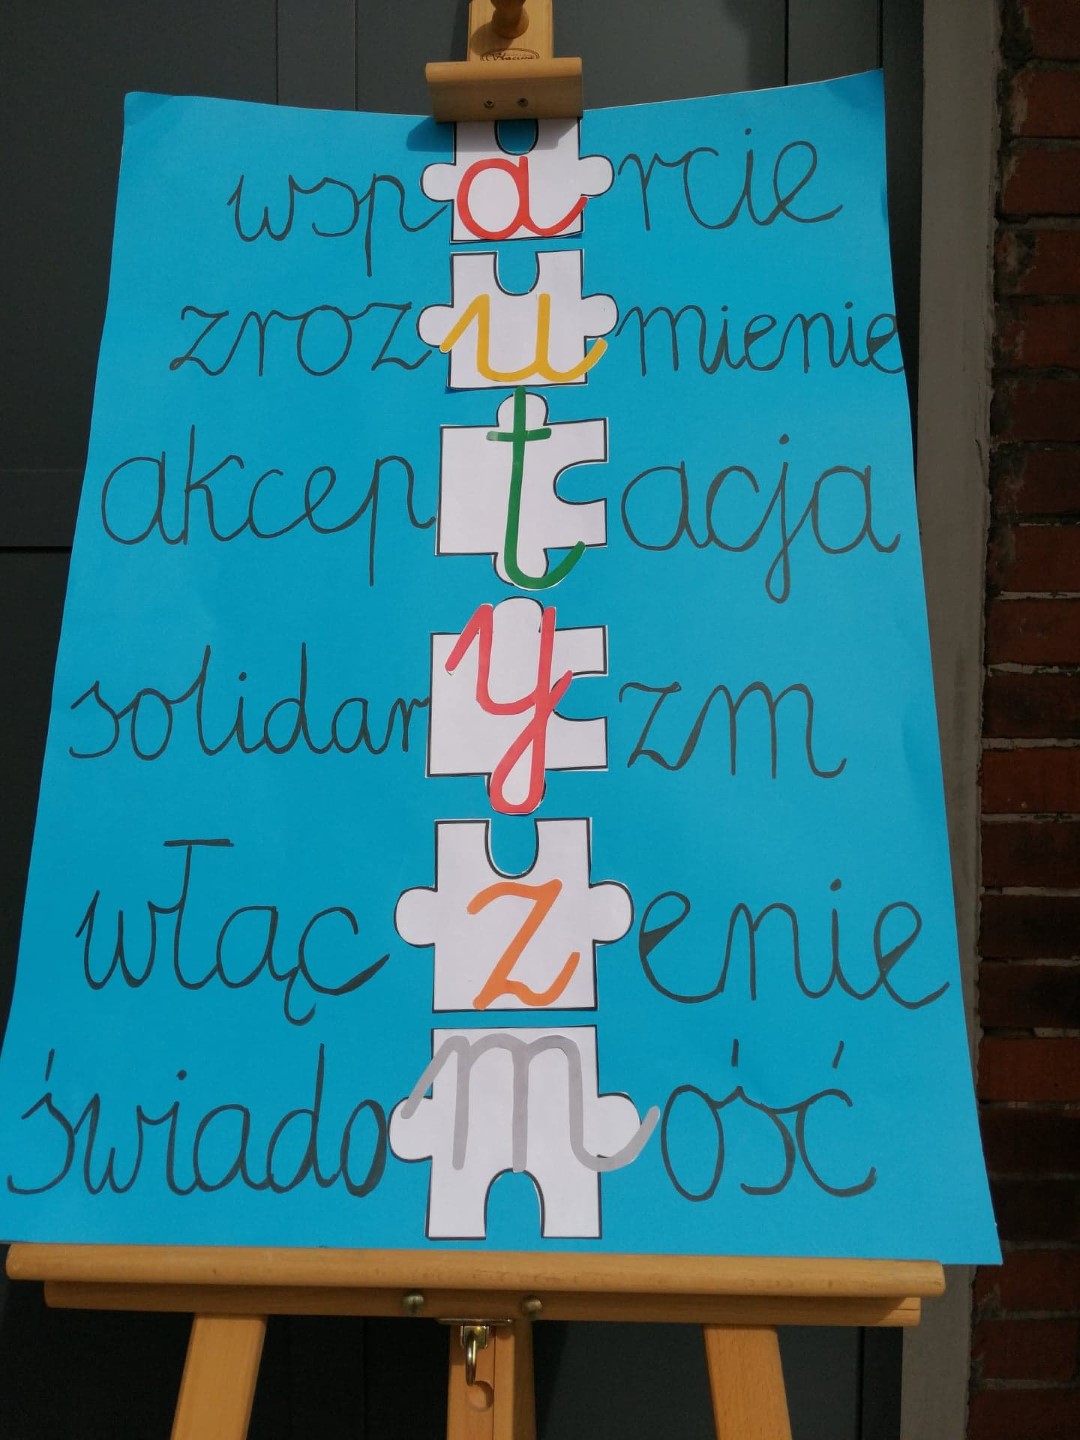 wsparcie
zrozumienie
akceptacja
solidaryzm
włączenie
świadomość